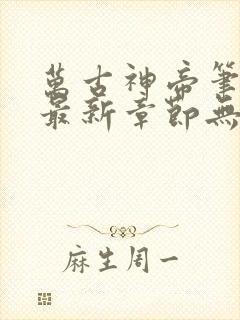 萬古神帝筆
最新章節無
麻生周一